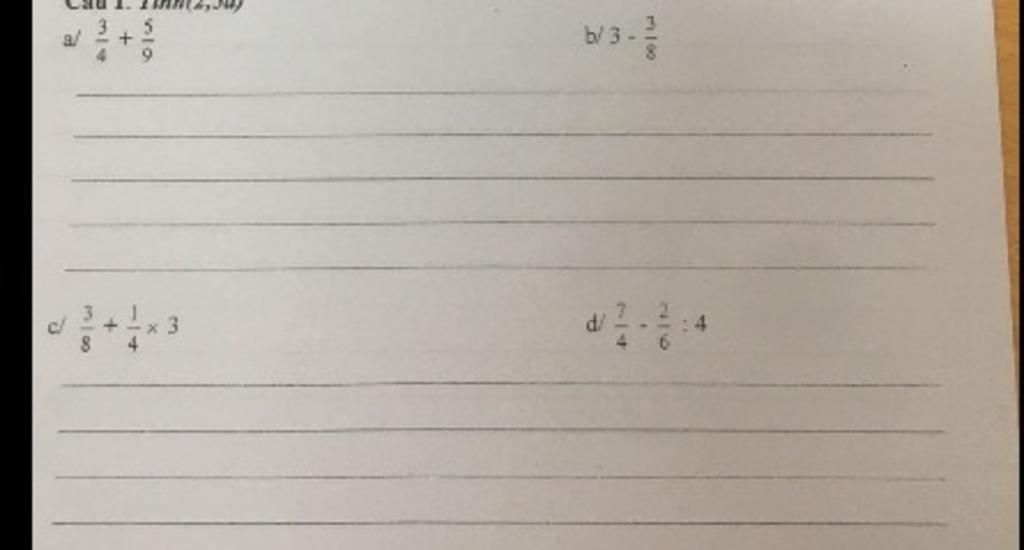 Câu 1. Tính(2,5đ)
a/ 3/4 + 5/9 b/ 3 - 3/8
c/ 3/8 + 1/4 × 3 d/ 7/4 - 2/6 : 4